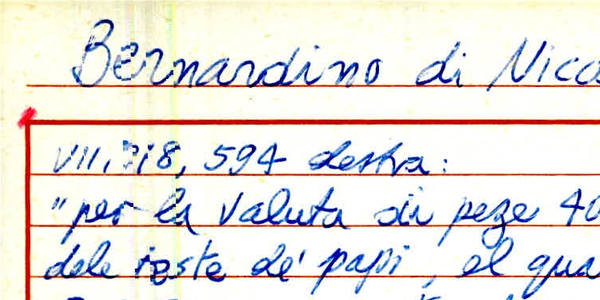 Bernardino di Nico
VII, 218, 594 destra:
"per la valuta di peze 40
dele teste de' papi, el qua